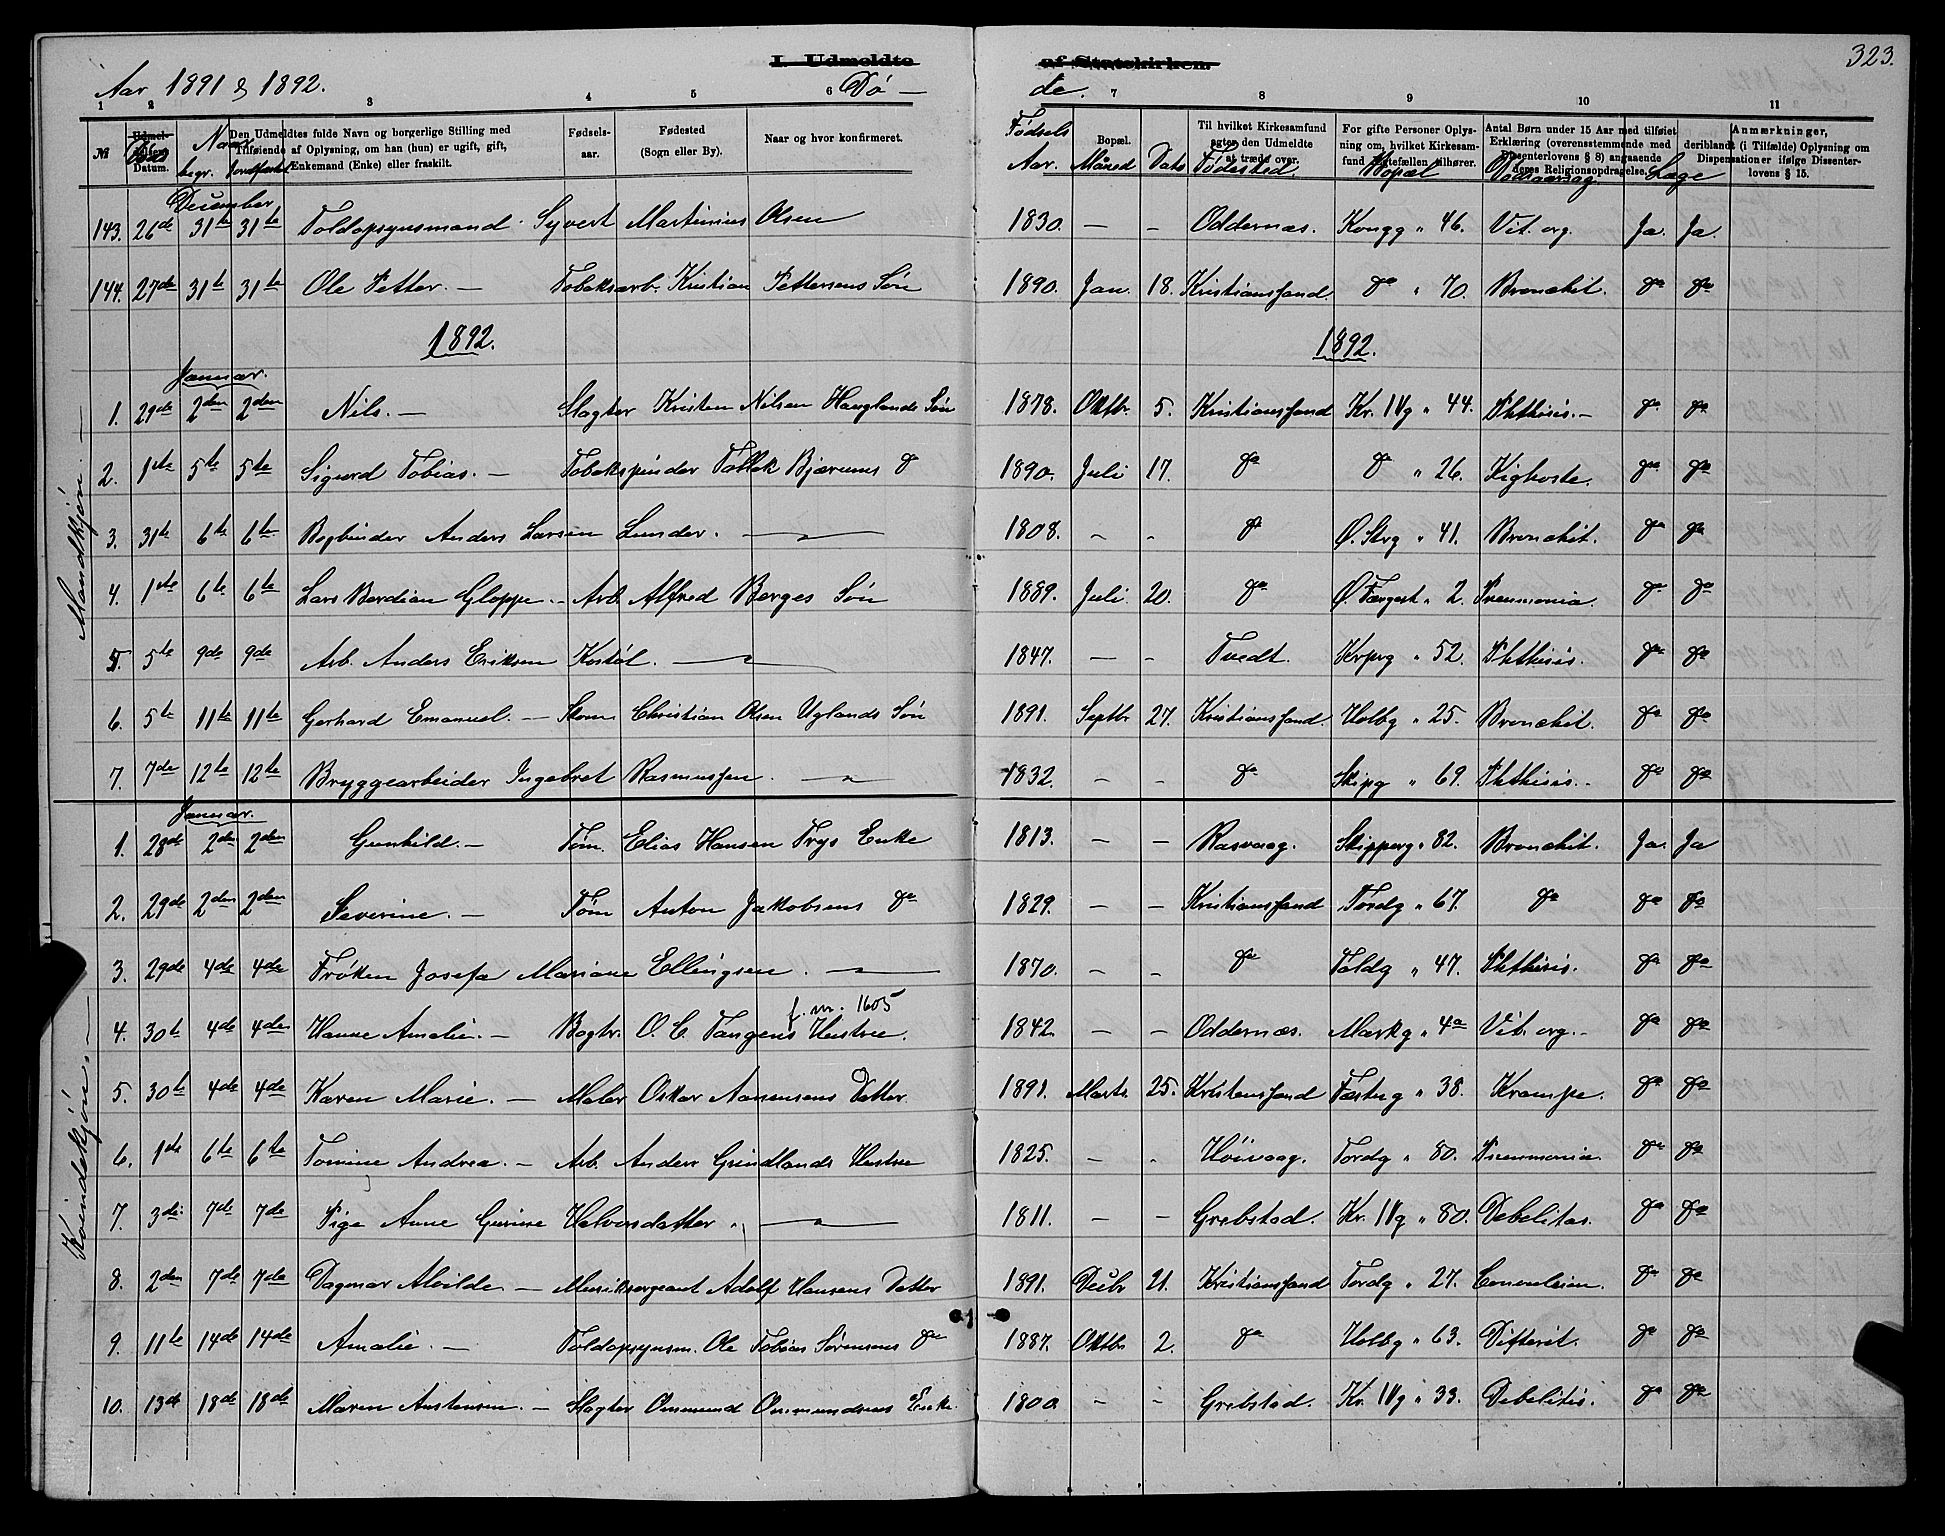 323.
Aar 1891 & 1892.
I. Udmeldte af Statskirken.
Dø- de.
1 2 3 4 5 6 7 8 9 10 11
№ Udmel- delsens Datum. Den Udmeldtes fulde Navn og borgerlige Stilling med Tilføiende af Oplysning, om han (hun) er ugift, gift, Enkemand (Enke) eller fraskilt. Fødsels- aar. Fødested (Sogn eller By). Naar og hvor konfirmeret. Bopæl. Til hvilket Kirkesamfund agter den Udmeldte at træde over. For gifte Personer Oplys- ning om, hvilket Kirkesam- fund Ægtefællen tilhører. Antal Børn under 15 Aar med tilføiet Erklæring (overensstemmende med Dissenterlovens § 8) angaaende deres Religionsopdragelse, deriblandt (i Tilfælde) Oplysning om Dispensationer ifølge Dissenter- lovens § 15. Anmærkninger,
Naar begr. Jordfæstet Fødsels Aar. Maaned Dato Fødested. Bopæl Dødsaarsag Læge
December
143. 26de 31te 31te Toldopsynsmand Syvert Martinius Olsen 1830. — - Oddernæs. Kongg " 46. Vit. org. Ja. Ja.
144. 27de 31te 31te Ole Petter. — Tobaksarb. Kristian Pettersens Søn 1890. Jan. 18. Kristianssand. do " 70. Bronchit. do do
1892. 1892.
Mandkjøn. —
Januar.
1. 29de 2den 2den Nils. — Slagter Kristen Nilsen Hauglands Søn 1878. Oktbr. 5. Kristianssand Kr. IVg " 44. Phthisis. - do do
2. 1ste 5te 5te Sigurd Tobias. — Tobakspinder Tallak Bjærums do 1890. Juli 17. do do " 26. Kighoste. do do
3. 31te 6te 6te Bogbinder Anders Larsen Lunder. — 1808. - - do Ø. Strg " 41. Bronchit. do do
4. 1ste 6te 6te Lars Berdian Gloppe. - Arb. Alfred Berges Søn 1889. Juli 20. do Ø. Færgest " 2. Pneumonia. do do
5. 5te 9de 9de Arb. Anders Eriksen Kostøl. — 1847. — - Tvedt. Krprg " 52. Phthisis. do do
6. 5te 11te 11te Gerhard Emanuel. — Skom. Christian Olsen Uglands Søn 1891. Septbr 27. Kristianssand. Holbg " 25. Bronchit. do do
7. 7de 12te 12te Bryggearbeider Ingebret Rasmussen. — 1832. - - do Skipg " 69. Phthisis. - do do
Kvindekjøn. —
Januar.
1. 28de 2den 2den Gunhild. — Tøm. Elias Hansen Frys Enke 1813. - - Rasvaag. Skipperg " 82. Bronchit. Ja. Ja
2. 29de 2den 2den Severine. — Tøm Anton Jakobsens do 1829. - - Kristianssand Tordg " 67. do do do
3. 29de 4de 4de Frøken Josefa Mariane Ellingsen. — 1870. - - do Toldg " 47. Phthisis. do do
f. m. 1605
4. 30te 4de 4de Hanne Amalie. — Bogtr. O. C. Tangens Hustru. 1842. - - Oddernæs. Markg " 4a Vit. org. - do do
5. 30te 4de 4de Karen Marie. — Maler Oskar Aanensens Datter. 1891. Marts. 25. Kristianssand Fæstng " 38. Krampe. do do
6. 1ste 6te 6te Tomine Andrea. — Arb. Anders Grindlands Hustru 1825. - - Høivaag. Tordg " 80. Pneumonia. do do
7. 3die 7de 7de Pige Anne Gurine Halvorsdatter. — 1811. - - Grebstad. Kr. IVg " 80. Debelitas. do do
8. 2den 7de 7de Dagmar Alvilde — Musiksergeant Adolf Hansens Datter 1891. Decbr 21. Kristianssand Tordg " 27. Convulsion. do do
9. 11te 14de 14de Amalie. — Toldopsynsm. Ole Tobias Sørensens do 1887. Oktbr 2. do Holbg " 63. Difterit. do do
10. 13de 18de 18de Maren Anstensen. — Slagter Ommund Ommundsens Enke. 1800. - - Grebstad. Kr. IVg " 33. Debelitis. do do